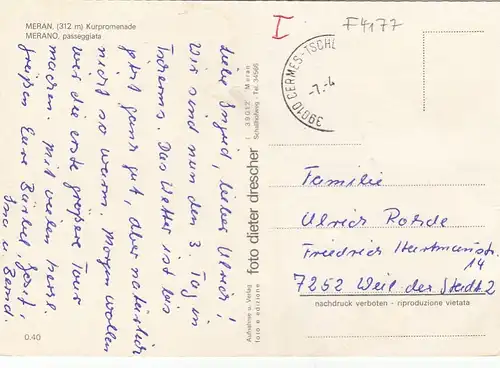 MERAN, (312 m) Kurpromenade
MERANO, passeggiata
I
F4177
39010 CERMES-TSCH
-7.-4
Liebe Ingrid, lieber Ulrich!
Wir sind nun den 3. Tag in
Tscherms. Das Wetter ist bis
jetzt ganz gut, aber natürlich
nicht so warm. Morgen wollen
wir die erste größere Tour
machen. Mit vielen herzl.
Grüßen Eure Bärbel, Gert,
Ina u. Bernd.
0.40
Aufnahme u. Verlag
foto e edizione
foto dieter drescher
I 39012 Meran
Tel. 34565
Familie
Ulrich Rohde
Friedrich Hartmannstr.
14
7252 Weil der Stadt 2
nachdruck verboten - riproduzione vietata